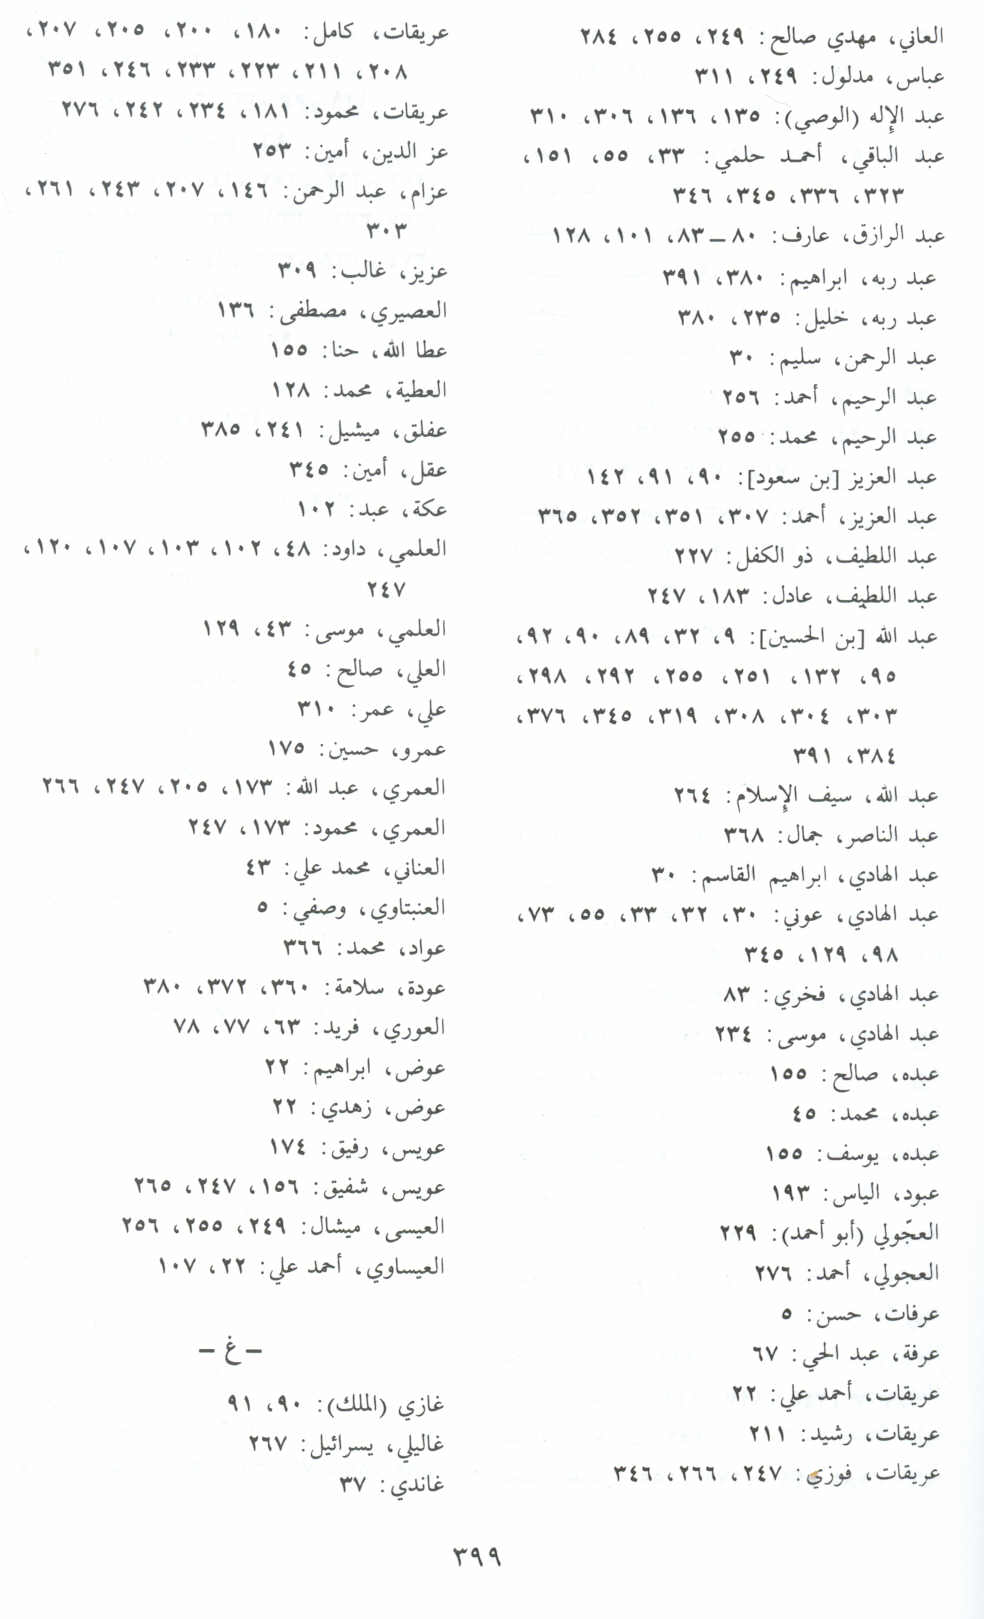 العاني، مهدي صالح: ٢٤٩، ٢٥٥، ٢٨٤
عباس، مدلول: ٢٤٩، ٣١١
عبد الإله (الوصي): ١٣٥، ١٣٦، ٣٠٦، ٣١٠
عبد الباقي، أحمد حلمي: ٣٣، ٥٥، ١٥١،
٣٢٣، ٣٣٦، ٣٤٥، ٣٤٦
عبد الرازق، عارف: ٨٠ – ٨٣، ١٠١، ١٢٨
عبد ربه، ابراهيم: ٣٨٠، ٣٩١
عبد ربه، خليل: ٢٣٥، ٣٨٠
عبد الرحمن، سليم: ٣٠
عبد الرحيم، أحمد: ٢٥٦
عبد الرحيم، محمد: ٢٥٥
عبد العزيز [بن سعود]: ٩٠، ٩١، ١٤٢
عبد العزيز، أحمد: ٣٠٧، ٣٥١، ٣٥٢، ٣٦٥
عبد اللطيف، ذو الكفل: ٢٢٧
عبد اللطيف، عادل: ١٨٣، ٢٤٧
عبد الله [بن الحسين]: ٩، ٣٢، ٨٩، ٩٠، ٩٢،
٩٥، ١٣٢، ٢٥١، ٢٥٥، ٢٩٢، ٢٩٨،
٣٠٣، ٣٠٤، ٣٠٨، ٣١٩، ٣٤٥، ٣٧٦،
٣٨٤، ٣٩١
عبد الله، سيف الإسلام: ٢٦٤
عبد الناصر، جمال: ٣٦٨
عبد الهادي، ابراهيم القاسم: ٣٠
عبد الهادي، عوني: ٣٠، ٣٢، ٣٣، ٥٥، ٧٣،
٩٨، ١٢٩، ٣٤٥
عبد الهادي، فخري: ٨٣
عبد الهادي، موسى: ٢٣٤
عبده، صالح: ١٥٥
عبده، محمد: ٤٥
عبده، يوسف: ١٥٥
عبود، الياس: ١٩٣
العجّولي (أبو أحمد): ٢٢٩
العجولي، أحمد: ٢٧٦
عرفات، حسن: ٥
عرفة، عبد الحي: ٦٧
عريقات، أحمد علي: ٢٢
عريقات، رشيد: ٢١١
عريقات، فوزي: ٢٤٧، ٢٦٦، ٣٤٦
عريقات، كامل: ١٨٠، ٢٠٠، ٢٠٥، ٢٠٧،
٢٠٨، ٢١١، ٢٢٣، ٢٣٣، ٢٤٦، ٣٥١
عريقات، محمود: ١٨١، ٢٣٤، ٢٤٢، ٢٧٦
عز الدين، أمين: ٢٥٣
عزام، عبد الرحمن: ١٤٦، ٢٠٧، ٢٤٣، ٢٦١،
٣٠٣
عزيز، غالب: ٣٠٩
العصيري، مصطفى: ١٣٦
عطا الله، حنا: ١٥٥
العطية، محمد: ١٢٨
عفلق، ميشيل: ٢٤١، ٣٨٥
عقل، أمين: ٣٤٥
عكة، عبد: ١٠٢
العلمي، داود: ٤٨، ١٠٢، ١٠٣، ١٠٧، ١٢٠،
٢٤٧
العلمي، موسى: ٤٣، ١٢٩
العلي، صالح: ٤٥
علي، عمر: ٣١٠
عمرو، حسين: ١٧٥
العمري، عبد الله: ١٧٣، ٢٠٥، ٢٤٧، ٢٦٦
العمري، محمود: ١٧٣، ٢٤٧
العناني، محمد علي: ٤٣
العنبتاوي، وصفي: ٥
عواد، محمد: ٣٦٦
عودة، سلامة: ٣٦٠، ٣٧٢، ٣٨٠
العوري، فريد: ٦٣، ٧٧، ٧٨
عوض، ابراهيم: ٢٢
عوض، زهدي: ٢٢
عويس، رفيق: ١٧٤
عويس، شفيق: ١٥٦، ٢٤٧، ٢٦٥
العيسى، ميشال: ٢٤٩، ٢٥٥، ٢٥٦
العيساوي، أحمد علي: ٢٢، ١٠٧
– غ –
غازي (الملك): ٩٠، ٩١
غاليلي، يسرائيل: ٢٦٧
غاندي: ٣٧
٣٩٩